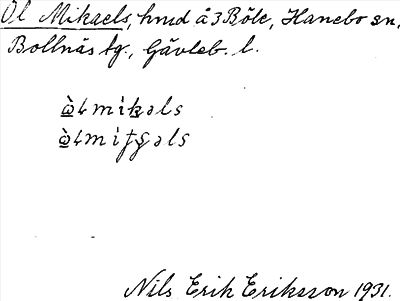 Ol Mikaels, hmd å 3 Böle, Hanebo sn,
Bollnäs tg., Gävleb. l.
Nils Erik Eriksson 1931.